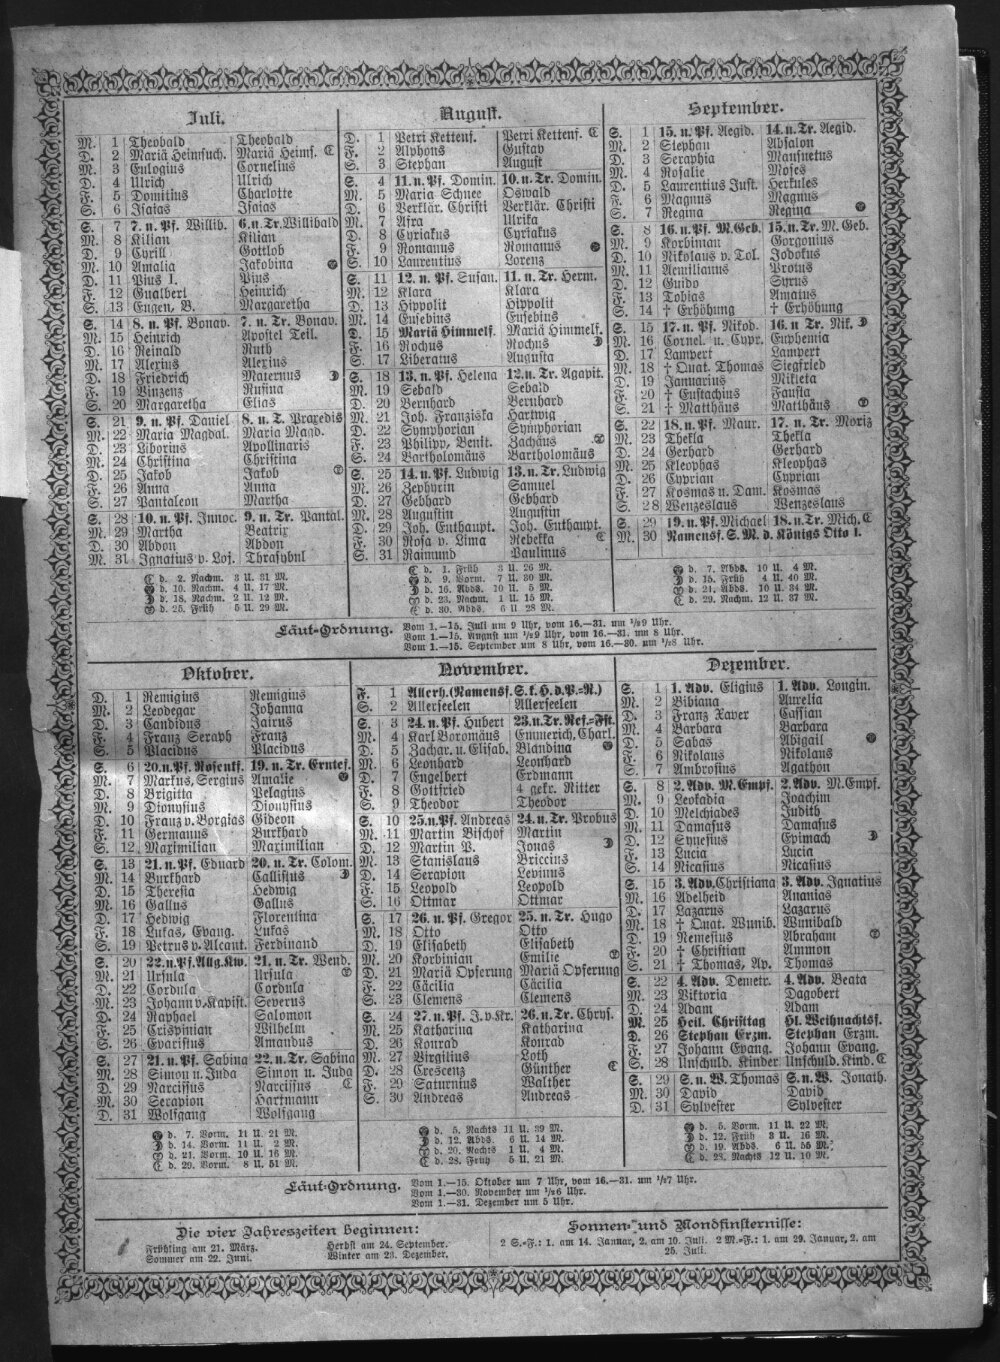 Juli.
M. 1 Theobald Theobald
D. 2 Mariä Heimsuch. Mariä Heims. ☾
M. 3 Eulogius Cornelius
D. 4 Ulrich Ulrich
F. 5 Domitius Charlotte
S. 6 Isaias Isaias
S. 7 7. n. Pf. Willib. 6. n. Tr. Willibald
M. 8 Kilian Kilian
D. 9 Cyrill Gottlob
M. 10 Amalia Jakobina
D. 11 Pius I. Pius
F. 12 Gualbert Heinrich
S. 13 Eugen, B. Margaretha
S. 14 8. n. Pf. Bonav. 7. n. Tr. Bonav.
M. 15 Heinrich Apostel Teil.
D. 16 Reinald Ruth
M. 17 Alexius Alexius
D. 18 Friedrich Maternus
F. 19 Vinzenz Rufina
S. 20 Margaretha Elias
S. 21 9. n. Pf. Daniel 8. n. T. Praxedis
M. 22 Maria Magdal. Maria Magd.
D. 23 Liborius Apollinaris
M. 24 Christina Christina
D. 25 Jakob Jakob
F. 26 Anna Anna
S. 27 Pantaleon Martha
S. 28 10. n. Pf. Innoc. 9. n. Tr. Pantal.
M. 29 Martha Beatrix
D. 30 Abdon Abdon
M. 31 Ignatius v. Loj. Thrasybul
☾ d. 2. Nachm. 3 U. 31 M.
d. 10. Nachm. 4 U. 17 M.
d. 18. Nachm. 2 U. 12 M.
d. 25. Früh 5 U. 29 M.
August.
D. 1 Petri Kettenf. Petri Kettenf. ☾
F. 2 Alphons Gustav
S. 3 Stephan August
S. 4 11. n. Pf. Domin. 10. n. Tr. Domin.
M. 5 Maria Schnee Oswald
D. 6 Verklär. Christi Verklär. Christi
M. 7 Afra Ulrika
D. 8 Cyriakus Cyriakus
F. 9 Romanus Romanus
S. 10 Laurentius Lorenz
S. 11 12. n. Pf. Susan. 11. n. Tr. Herm.
M. 12 Klara Klara
D. 13 Hippolit Hippolit
M. 14 Eusebius Eusebius
D. 15 Mariä Himmelf. Mariä Himmelf.
F. 16 Rochus Rochus
S. 17 Liberatus Augusta
S. 18 13. n. Pf. Helena 12. n. Tr. Agapit.
M. 19 Sebald Sebald
D. 20 Bernhard Bernhard
M. 21 Joh. Franziska Hartwig
D. 22 Symphorian Symphorian
F. 23 Philipp, Benit. Zachäus
S. 24 Bartholomäus Bartholomäus
S. 25 14. n. Pf. Ludwig 13. n. Tr. Ludwig
M. 26 Zephyrin Samuel
D. 27 Gebhard Gebhard
M. 28 Augustin Augustin
D. 29 Joh. Enthaupt. Joh. Enthaupt.
F. 30 Rosa v. Lima Rebekka ☾
S. 31 Raimund Paulinus
☾ d. 1. Früh 3 U. 26 M.
d. 9. Vorm. 7 U. 30 M.
d. 16. Abds. 10 U. 5 M.
d. 23. Nachm. 1 U. 15 M.
☾ d. 30. Abds. 6 U. 28 M.
September.
S. 1 15. n. Pf. Aegid. 14. n. Tr. Aegid.
M. 2 Stephan Absalon
D. 3 Seraphia Mansuetus
M. 4 Rosalie Moses
D. 5 Laurentius Just. Herkules
F. 6 Magnus Magnus
S. 7 Regina Regina
S. 8 16. n. Pf. M. Geb. 15. n. Tr. M. Geb.
M. 9 Korbinian Gorgonius
D. 10 Nikolaus v. Tol. Jodokus
M. 11 Aemilianus Protus
D. 12 Guido Syrus
F. 13 Tobias Amatus
S. 14 † Erhöhung † Erhöhung
S. 15 17. n. Pf. Nikod. 16. n Tr. Nik.
M. 16 Cornel. u. Cypr. Euphemia
D. 17 Lampert Lampert
M. 18 † Quat. Thomas Siegfried
D. 19 Januarius Mikleta
F. 20 † Eustachius Fausta
S. 21 † Matthäus Matthäus
S. 22 18. n. Pf. Maur. 17. n. Tr. Moriz
M. 23 Thekla Thekla
D. 24 Gerhard Gerhard
M. 25 Kleophas Kleophas
D. 26 Cyprian Cyprian
F. 27 Kosmas u. Dam. Kosmas
S. 28 Wenzeslaus Wenzeslaus
S. 29 19. n. Pf. Michael 18. n. Tr. Mich. ☾
M. 30 Namensf. S. M. d. Königs Otto I.
d. 7. Abds. 10 U. 4 M.
d. 15. Früh 4 U. 40 M.
d. 21. Abds. 10 U. 34 M.
☾ d. 29. Nachm. 12 U. 37 M.
Läut-Ordnung. Vom 1.—15. Juli um 9 Uhr, vom 16.—31. um 1/2 9 Uhr.
Vom 1.—15. August um 1/2 9 Uhr, vom 16.—31. um 8 Uhr.
Vom 1.—15. September um 8 Uhr, vom 16.—30. um 1/2 8 Uhr.
Oktober.
D. 1 Remigius Remigius
M. 2 Leodegar Johanna
D. 3 Candidus Jairus
F. 4 Franz Seraph Franz
S. 5 Placidus Placidus
S. 6 20. n. Pf. Rosenkf. 19. n. Tr. Erntef.
M. 7 Markus, Sergius Amalie
D. 8 Brigitta Pelagius
M. 9 Dionysius Dionysius
D. 10 Franz v. Borgias Gideon
F. 11 Germanus Burkhard
S. 12 Maximilian Maximilian
S. 13 21. n. Pf. Eduard 20. n. Tr. Colom.
M. 14 Burkhard Callistus
D. 15 Theresia Hedwig
M. 16 Gallus Gallus
D. 17 Hedwig Florentina
F. 18 Lukas, Evang. Lukas
S. 19 Petrus v. Alcant. Ferdinand
S. 20 22. n. Pf. Allg. Kw. 21. n. Tr. Wend.
M. 21 Ursula Ursula
D. 22 Cordula Cordula
M. 23 Johann v. Kapist. Severus
D. 24 Raphael Salomon
F. 25 Crispinian Wilhelm
S. 26 Evaristus Amandus
S. 27 21. n. Pf. Sabina 22. n. Tr. Sabina
M. 28 Simon u. Juda Simon u. Juda
D. 29 Narcissus Narcissus ☾
M. 30 Serapion Hartmann
D. 31 Wolfgang Wolfgang
d. 7. Vorm. 11 U. 21 M.
d. 14. Vorm. 11 U. 2 M.
d. 21. Vorm. 10 U. 16 M.
☾ d. 29. Vorm. 8 U. 51 M.
November.
F. 1 Allerh. (Namensf. S. k. H. d. P.=R.)
S. 2 Allerseelen Allerseelen
S. 3 24. n. Pf. Hubert 23. n. Tr. Ref.=Fst.
M. 4 Karl Boromäus Emmerich, Charl.
D. 5 Zachar. u. Elisab. Blandina
M. 6 Leonhard Leonhard
D. 7 Engelbert Erdmann
F. 8 Gottfried 4 gekr. Ritter
S. 9 Theodor Theodor
S. 10 25. n. Pf. Andreas 24. n. Tr. Probus
M. 11 Martin Bischof Martin
D. 12 Martin P. Jonas
M. 13 Stanislaus Briccius
D. 14 Serapion Levinus
F. 15 Leopold Leopold
S. 16 Ottmar Ottmar
S. 17 26. n. Pf. Gregor 25. n. Tr. Hugo
M. 18 Otto Otto
D. 19 Elisabeth Elisabeth
M. 20 Korbinian Emilie
D. 21 Mariä Opferung Mariä Opferung
F. 22 Cäcilia Cäcilia
S. 23 Clemens Clemens
S. 24 27. n. Pf. J. v. Kr. 26. n. Tr. Chrys.
M. 25 Katharina Katharina
D. 26 Konrad Konrad
M. 27 Virgilius Loth
D. 28 Crescenz Günther ☾
F. 29 Saturnius Walther
S. 30 Andreas Andreas
d. 5. Nachts 11 U. 39 M.
d. 12. Abds. 6 U. 14 M.
d. 20. Nachts 1 U. 4 M.
☾ d. 28. Früh 5 U. 21 M.
Dezember.
S. 1 1. Adv. Eligius 1. Adv. Longin.
M. 2 Bibiana Aurelia
D. 3 Franz Xaver Cassian
M. 4 Barbara Barbara
D. 5 Sabas Abigail
F. 6 Nikolaus Nikolaus
S. 7 Ambrosius Agathon
S. 8 2. Adv. M. Empf. 2. Adv. M. Empf.
M. 9 Leokadia Joachim
D. 10 Melchiades Judith
M. 11 Damasus Damasus
D. 12 Synesius Epimach
F. 13 Lucia Lucia
S. 14 Nicasius Nicasius
S. 15 3. Adv. Christiana 3. Adv. Ignatius
M. 16 Adelheid Ananias
D. 17 Lazarus Lazarus
M. 18 † Quat. Wunib. Wunibald
D. 19 Nemesius Abraham
F. 20 † Christian Ammon
S. 21 † Thomas, Ap. Thomas
S. 22 4. Adv. Demetr. 4. Adv. Beata
M. 23 Viktoria Dagobert
D. 24 Adam Adam
M. 25 Heil. Christtag Hl. Weihnachtsf.
D. 26 Stephan Erzm. Stephan Erzm.
F. 27 Johann Evang. Johann Evang.
S. 28 Unschuld. Kinder Unschuld. Kind. ☾
S. 29 S. n. W. Thomas S. n. W. Jonath.
M. 30 David David
D. 31 Sylvester Sylvester
d. 5. Vorm. 11 U. 22 M.
d. 12. Früh 3 U. 16 M.
d. 19. Abds. 6 U. 55 M.
☾ d. 28. Nachts 12 U. 10 M.
Läut-Ordnung. Vom 1.—15. Oktober um 7 Uhr, vom 16.—31. um 1/2 7 Uhr.
Vom 1.—30. November um 1/2 6 Uhr.
Vom 1.—31. Dezember um 5 Uhr.
Die vier Jahreszeiten beginnen:
Frühling am 21. März. Herbst am 24. September.
Sommer am 22. Juni. Winter am 23. Dezember.
Sonnen- und Mondfinsternisse:
2 S.=F.: 1. am 14. Januar, 2. am 10. Juli. 2 M.=F.: 1. am 29. Januar, 2. am
25. Juli.